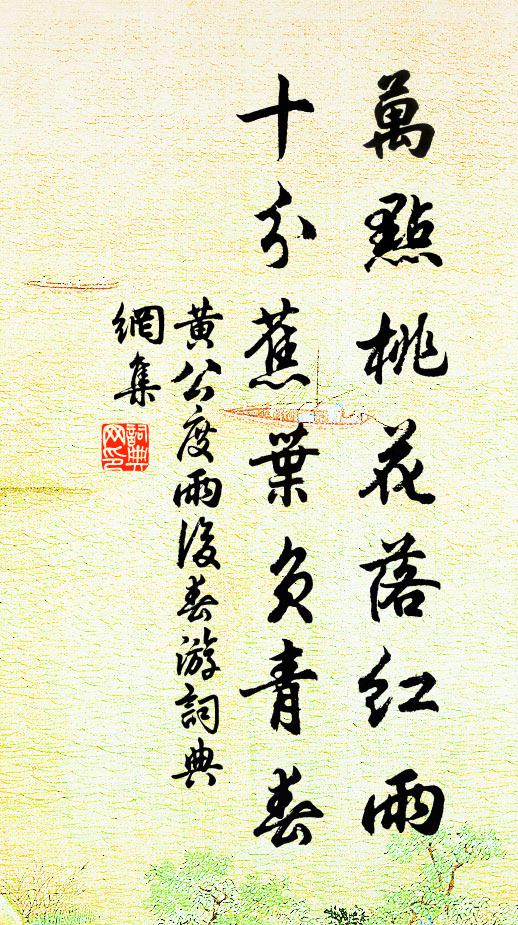 萬點桃花落紅雨
十分蕉葉負青春
黃公度雨後春游詞典
網集
詞典
网印